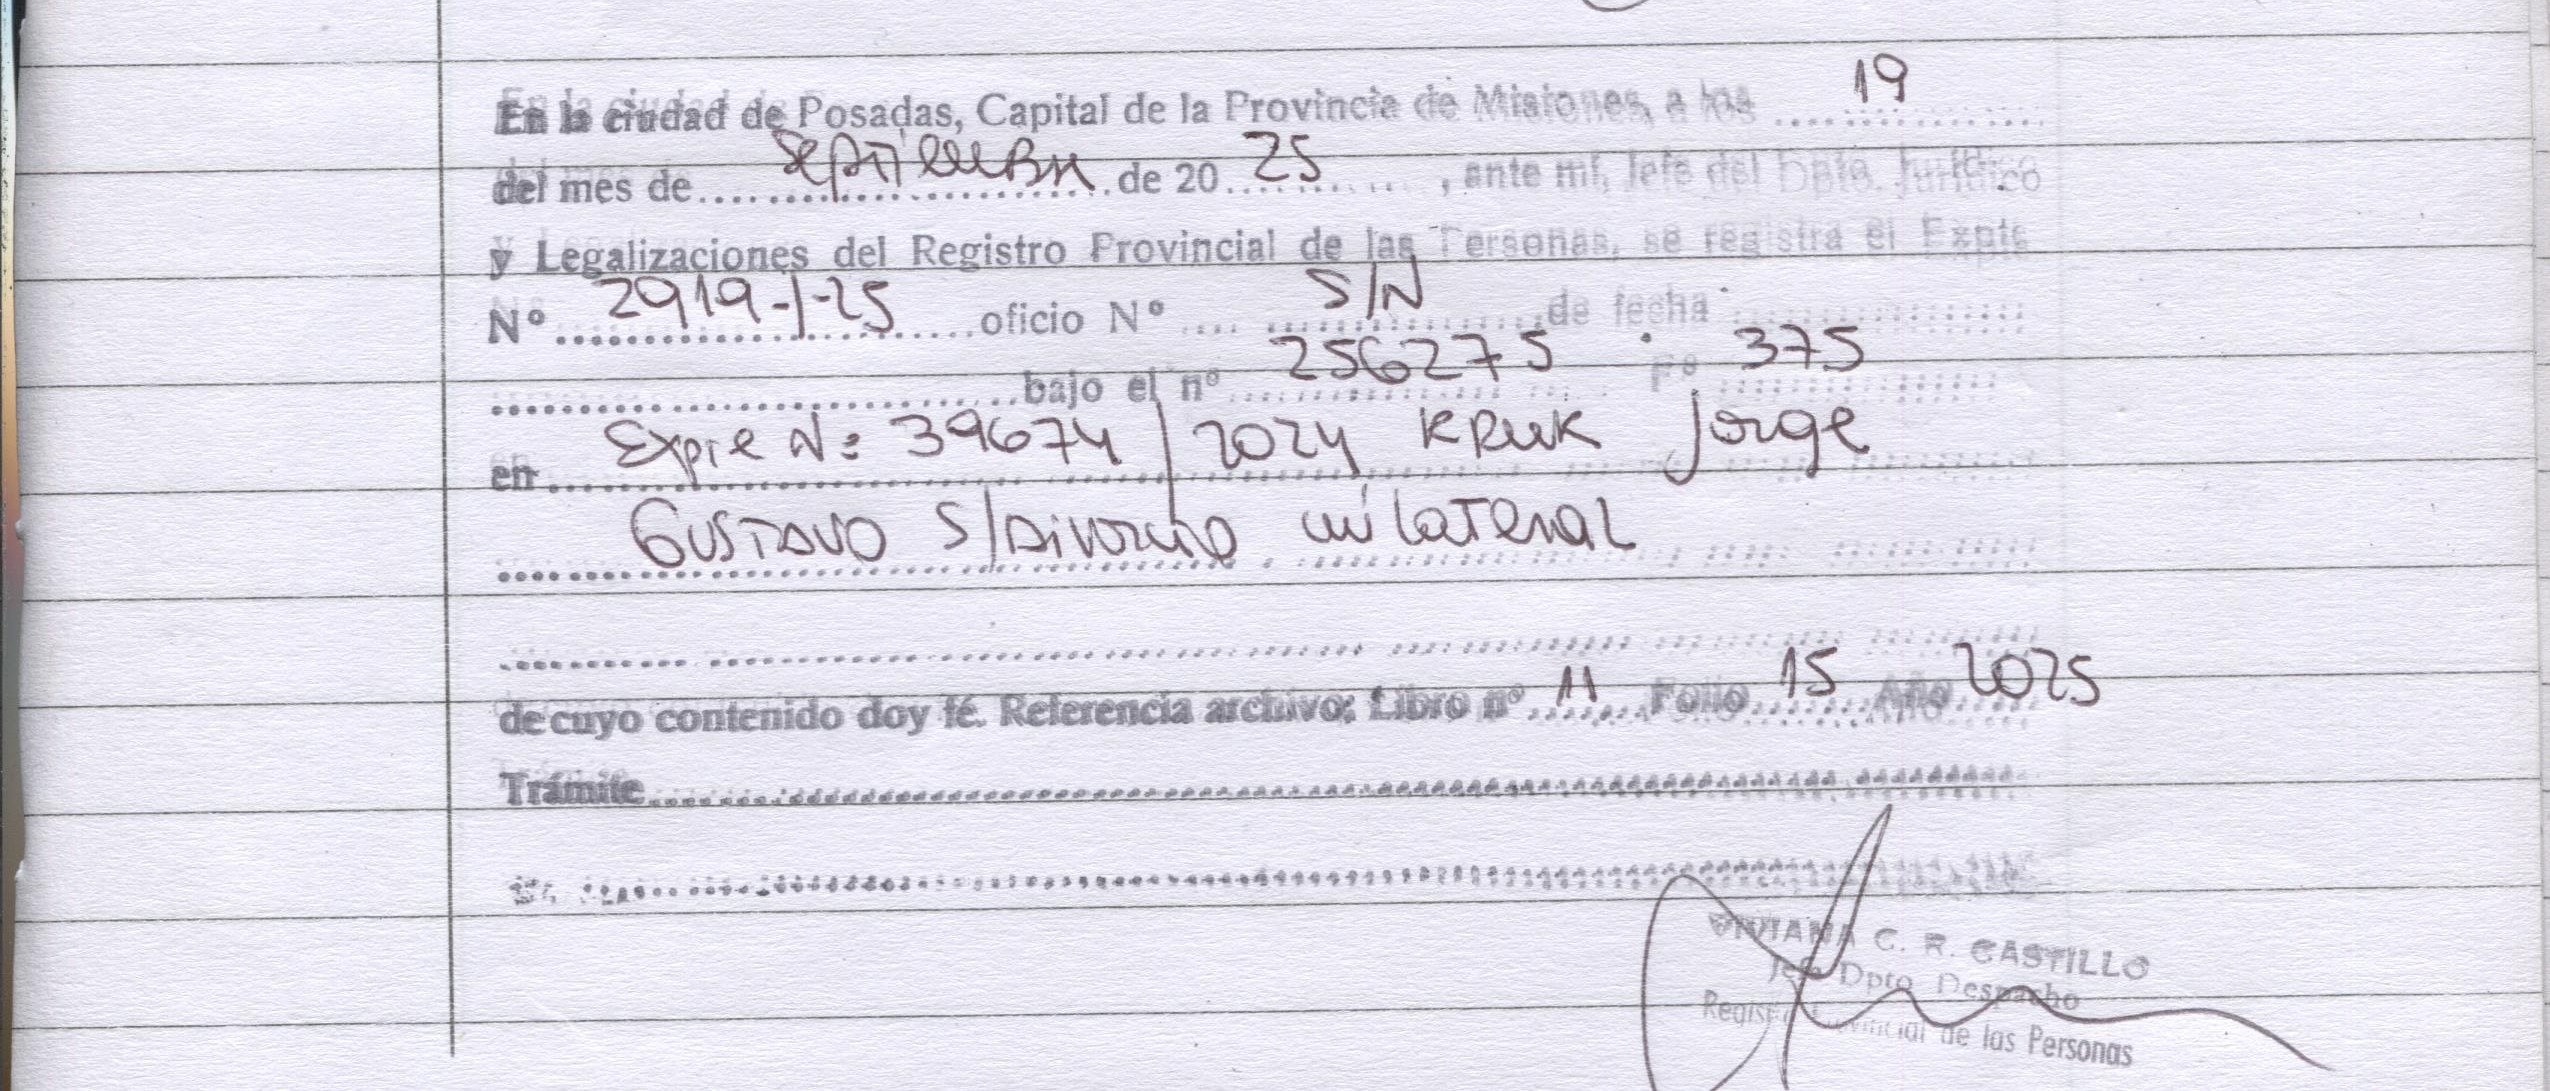 En la ciudad de Posadas, Capital de la Provincia de Misiones, a los 19
del mes de Septiembre de 20 25, ante mí, Jefe del Dpto. Jurídico
y Legalizaciones del Registro Provincial de las Personas, se registra el Expte
N° 2919-1-25 oficio N° S/N de fecha
bajo el n° 256275 F° 375
en Expte N: 39674/2024 KRUK Jorge
GUSTAVO S/Divorcio unilateral
de cuyo contenido doy fé. Referencia archivo: Libro n° 11 Folio 15 Año 2025
Trámite
VIVIANA C. R. CASTILLO
Jefe Dpto Despacho
Registro Provincial de las Personas